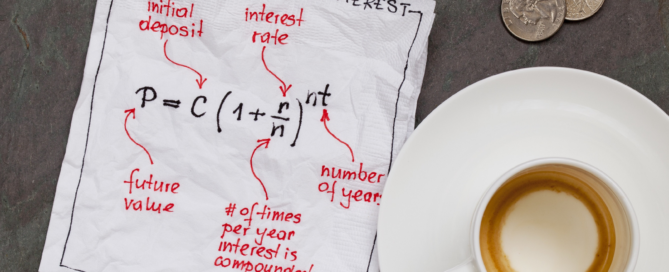 INTEREST
initial
deposit
interest
rate
P = C (1 + r/n)^nt
future
value
# of times
per year
interest is
compounded
number
of years